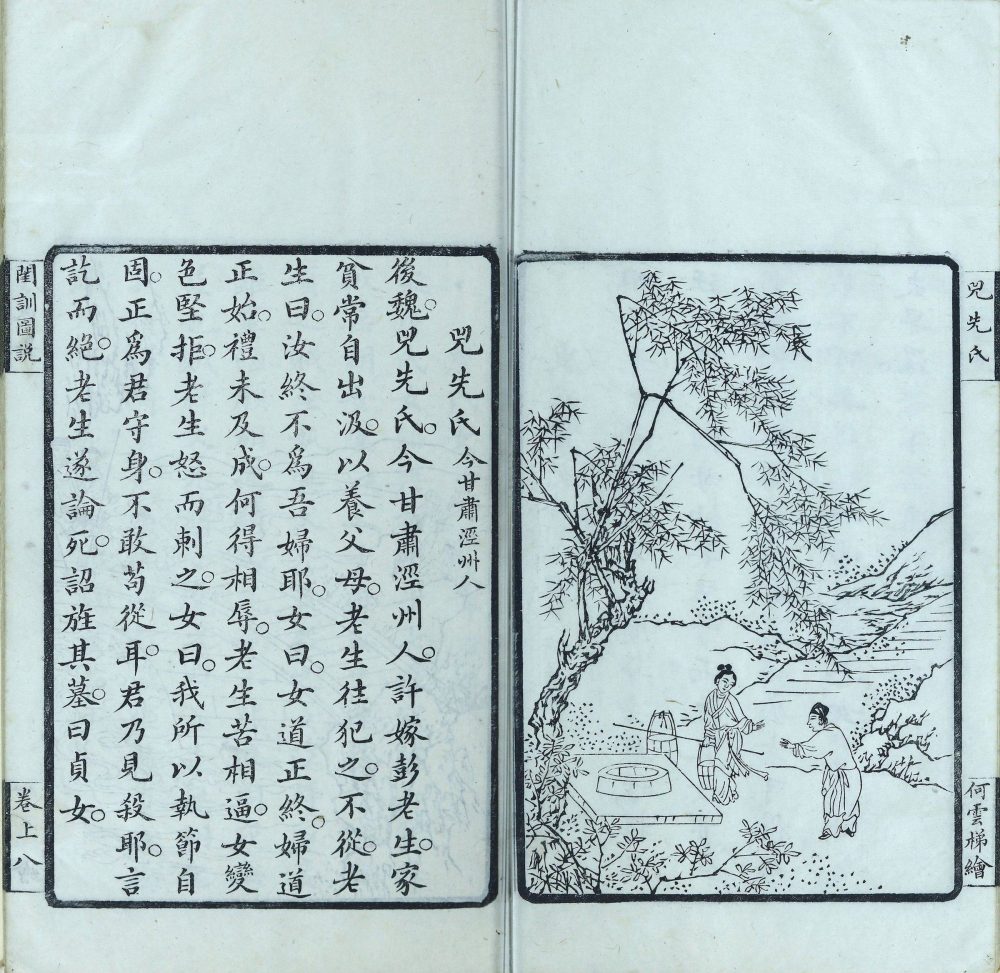 兕先氏
何雲梯繪
兕先氏 今甘肅涇州人
後魏。兕先氏。今甘肅涇州人。許嫁彭老生。家
貧常自出汲。以養父母。老生往犯之。不從。老
生曰。汝終不爲吾婦耶。女曰。女道正終。婦道
正始。禮未及成。何得相辱。老生苦相逼。女變
色堅拒。老生怒而刺之。女曰。我所以執節自
固。正爲君守身。不敢苟從耳。君乃見殺耶。言
訖而絕。老生遂論死。詔旌其墓。曰貞女。
閨訓圖説
卷上 八